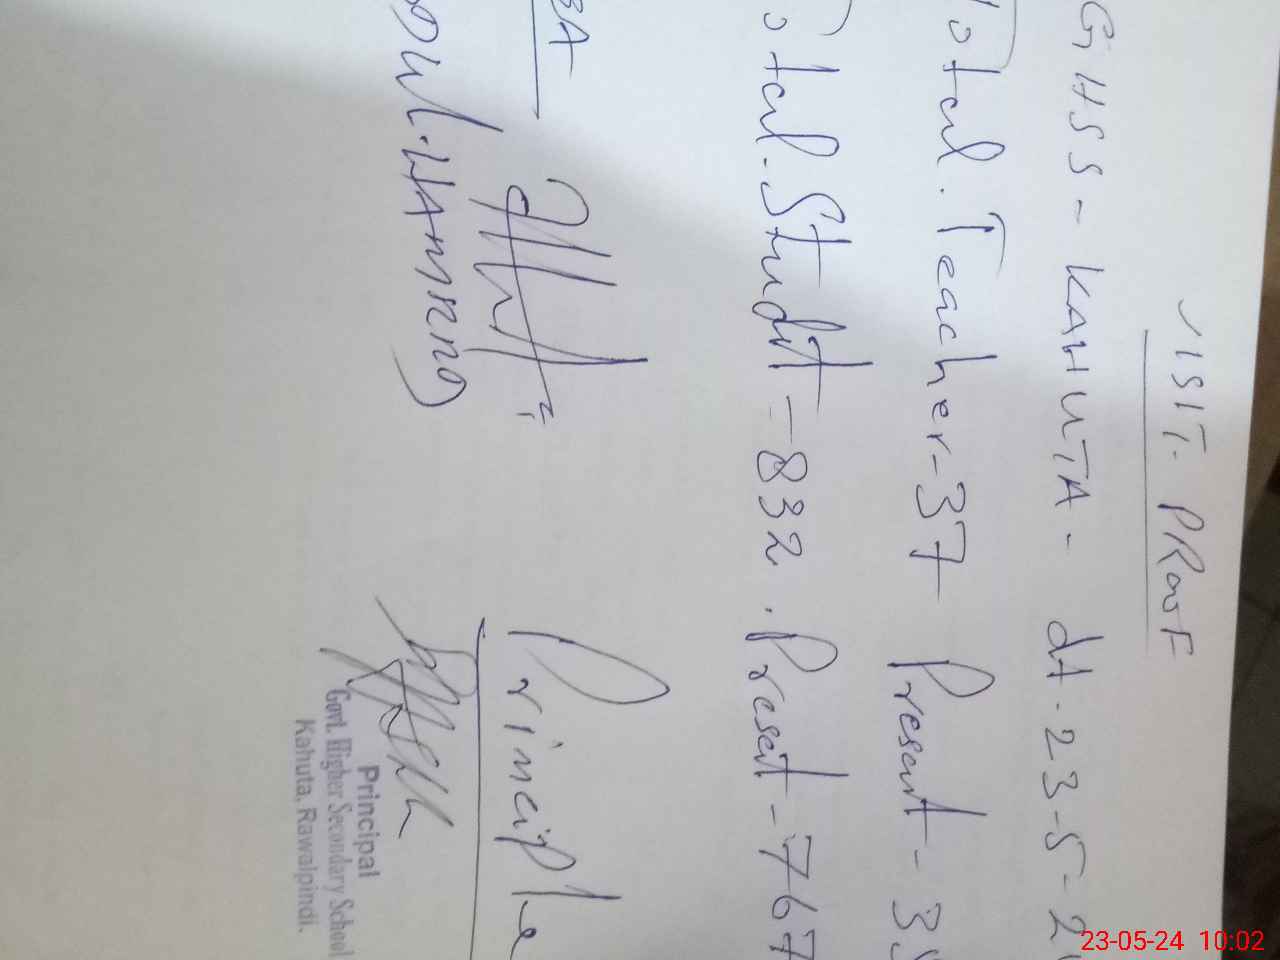 VISIT. PRooF
GHSS - KAHUTA - dt. 23-5-2
Total. Teacher-37 Present - 3
Total. Studt = 832. Preset - 767
Principle
Principal
Govt. Higher Secondary School
Kahuta, Rawalpindi.
23-05-24 10:02